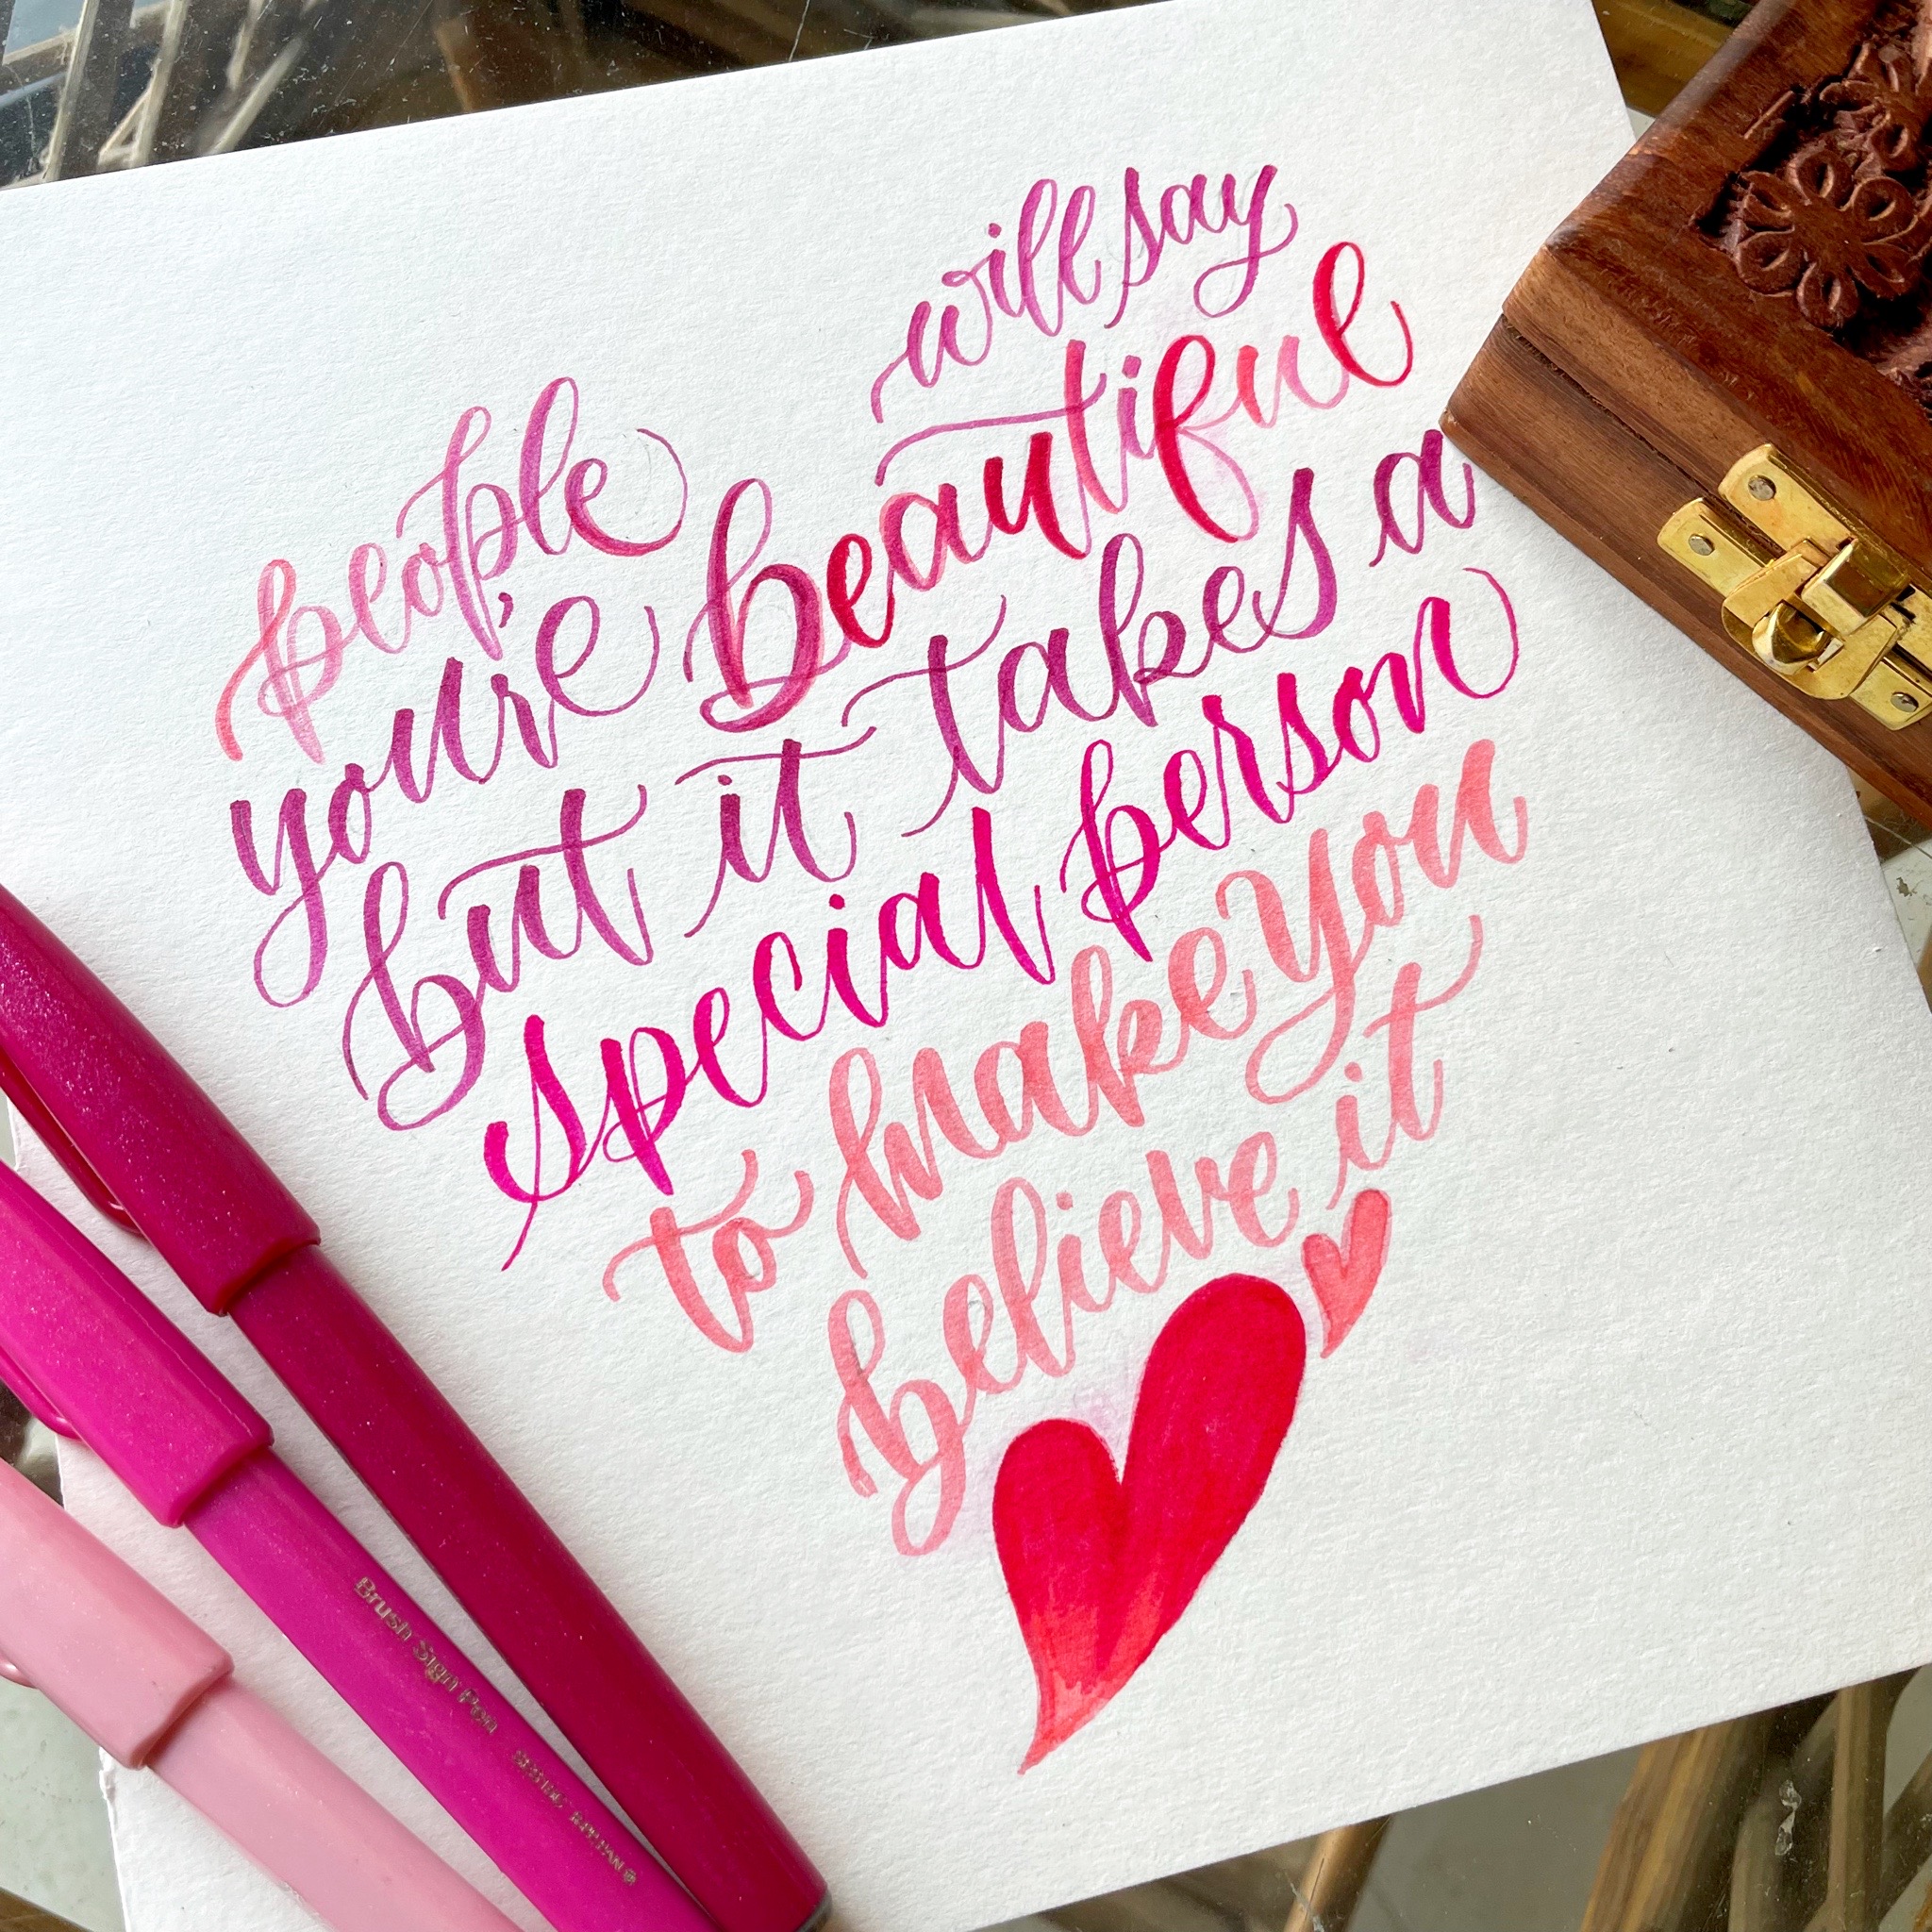 people will say
you're beautiful
but it takes a
special person
to make you
believe it
Brush Sign Pen